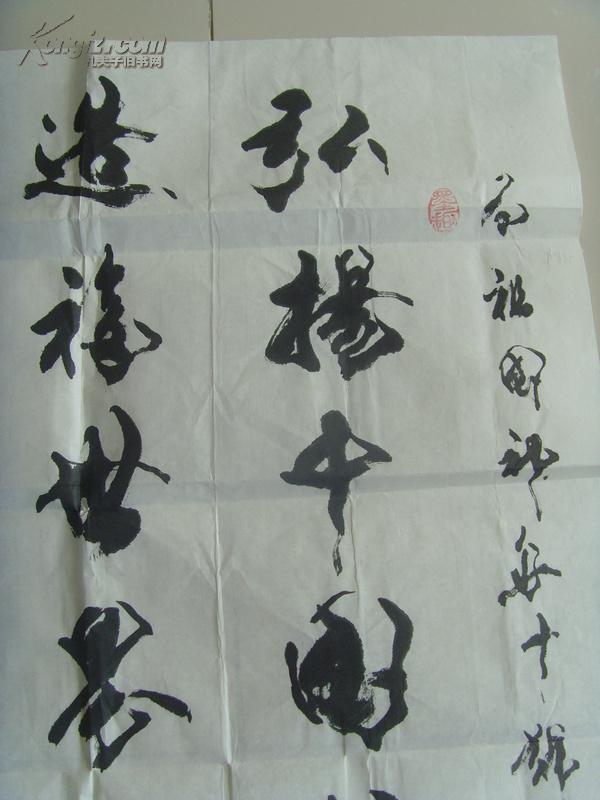 为祖国神舟十一号
弘扬中国
造福世界
Kongfz.com
孔夫子旧书网